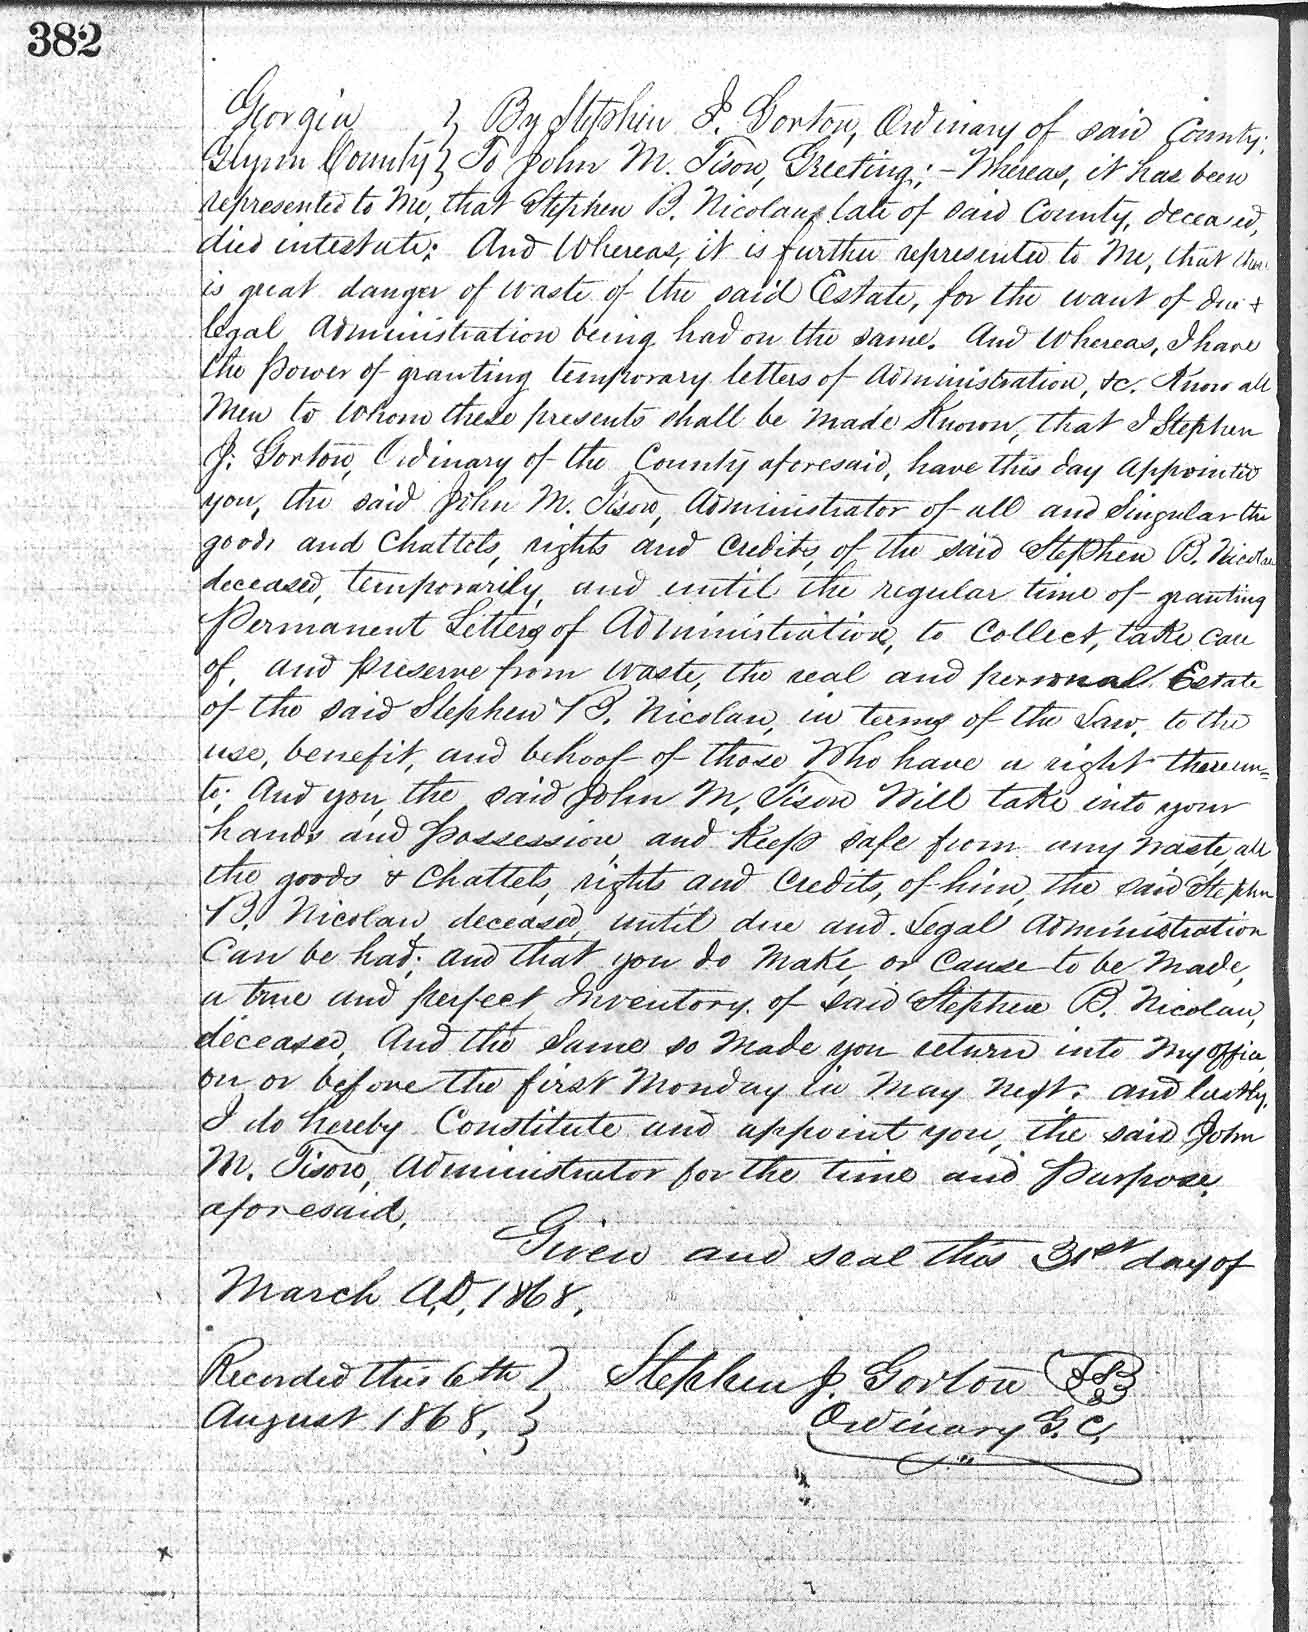 382
Georgia } By Stephen J. Gorton, Ordinary of said County;
Glynn County } To John M. Tison, Greeting; - Whereas, it has been
represented to Me, that Stephen B. Nicolau, late of said County, deceased,
died intestate: And Whereas, it is further represented to Me, that there
is great danger of waste of the said Estate, for the want of due &
legal Administration being had on the same. And Whereas, I have
the power of granting temporary letters of Administration, &c. Know all
Men to whom these presents shall be made Known, that I Stephen
J. Gorton, Ordinary of the County aforesaid, have this day appointed
you, the said John M. Tison, Administrator of all and Singular the
goods and Chattels, rights and Credits, of the said Stephen B. Nicolau
deceased, temporarily, and until the regular time of granting
Permanent Letters of Administration, to Collect, take care
of, and preserve from waste, the real and personal Estate
of the said Stephen B. Nicolau, in terms of the Law, to the
use, benefit, and behoof of those Who have a right thereun=
to; And you, the said John M. Tison Will take into your
hands and possession and Keep safe from any waste, all
the goods & Chattels, rights and Credits, of him, the said Stephen
B. Nicolau, deceased, until due and Legal Administration
Can be had; and that you do Make, or Cause to be Made,
a true and perfect Inventory of said Stephen B. Nicolau,
deceased, And the Same so Made you return into My office,
on or before the first Monday in May Next: and lastly,
I do hereby Constitute and appoint you, the said John
M. Tison, Administrator for the time and Purpose
aforesaid.
Given and seal this 31st day of
March A.D. 1868.
Recorded this 6th } Stephen J. Gorton
August 1868. } Ordinary G. C.